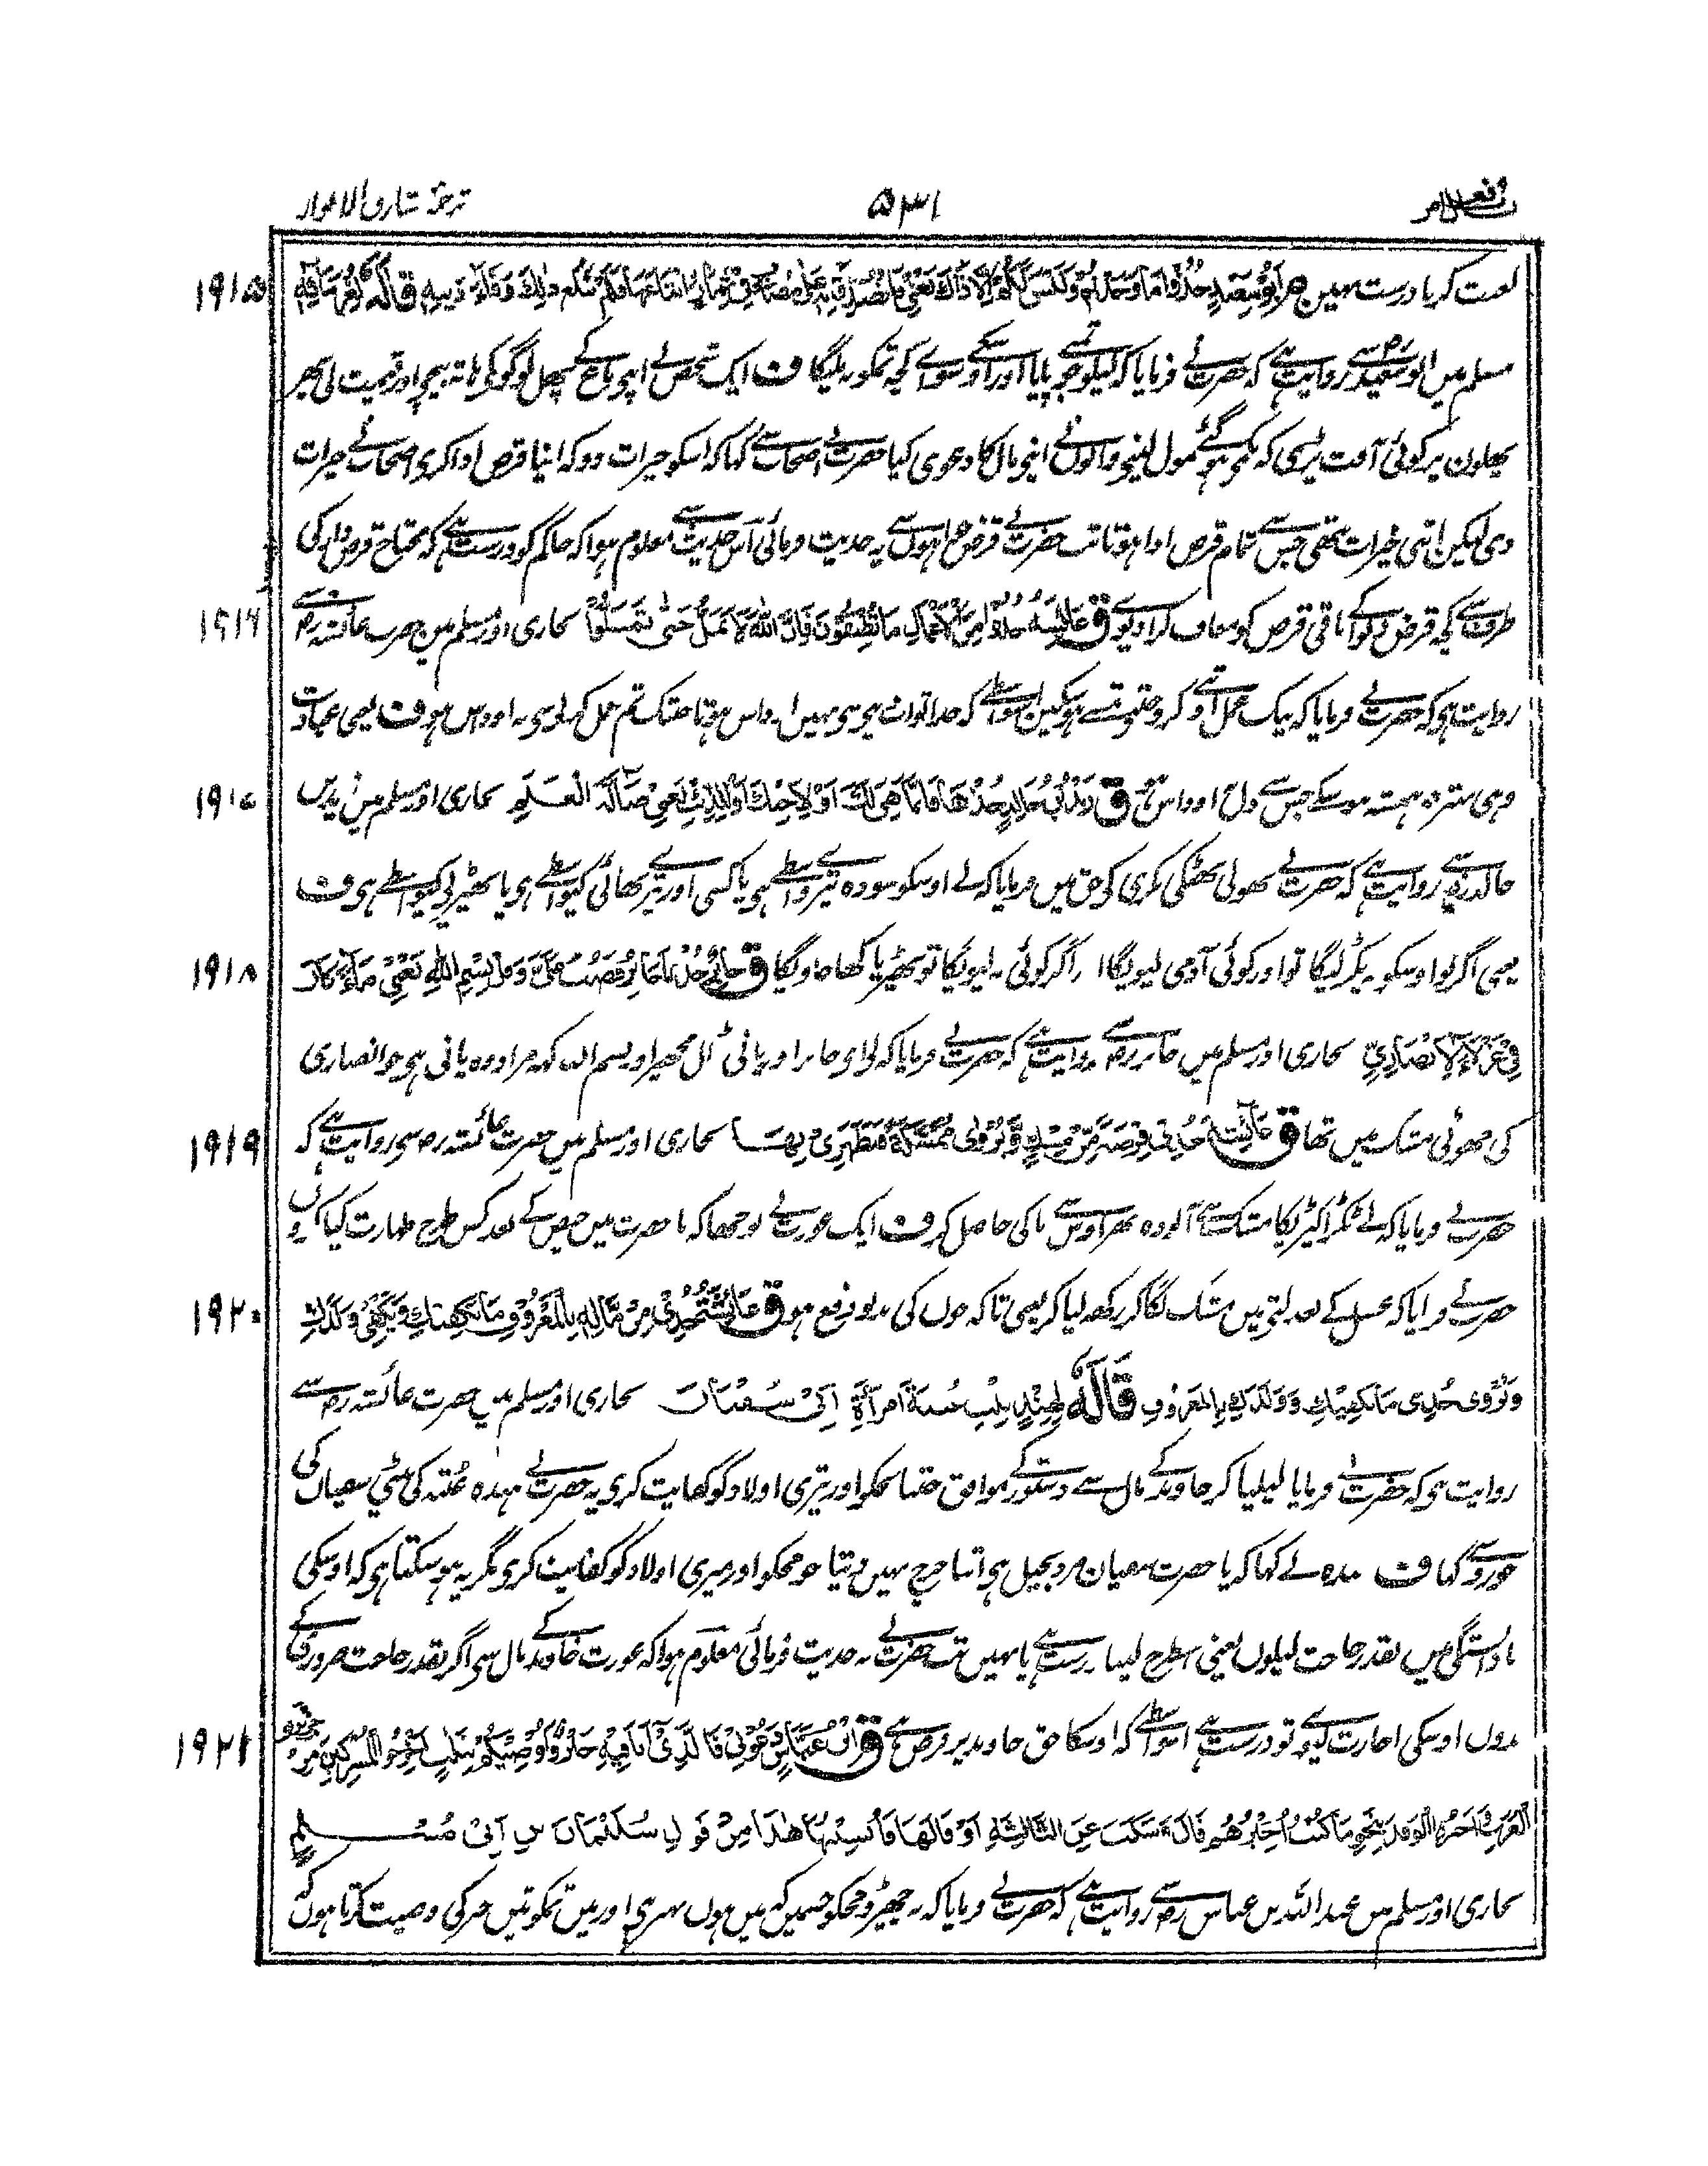 ترجمۂ مشارق الانوار
۵۳۱
لعنت کرنا درست نہین م ابو سعید خذوا ما وجدتم وليس لكم الا ذلك يعني ما تصدق به على قاله لغرمائه ۱۹۱۵
مسلم میں ابو سعید سے روایت ہے کہ حضرت نے فرمایا کہ لیلو جو پایا اور اوسکے سوائے کچھ تمکو نہ ملیگا ف ایک شخص نے اپنی باغ کے پھل لوگوں کے ہاتھ بیچے اور قیمت لی پھر
پھلون پر کوئی آفت پڑی کہ نکمی ہوگئے مول لینی والوں نے اپنی مال کا دعوی کیا حضرت نے اصحاب سے کہا کہ اسکو خیرات دو کہ اپنا قرض ادا کری اصحاب نے خیرات
دی لیکن اتنی خیرات نتھی جس سے تمام قرض ادا ہوتا تب حضرت نے قرض خواہوں سے یہ حدیث فرمائی اس حدیث سے معلوم ہوا کہ حاکم کو درست ہے کہ محتاج قرضدار کی
طرف سے کچھ قرض دلا کے باقی قرض کو معاف کرا دیوے ق عائشة خذوا من الاعمال ما تطيقون فان الله لا يمل حتى تملوا بخاری اور مسلم میں حضرت عائشہ رض سے ۱۹۱۶
روایت ہی کہ حضرت نے فرمایا کہ نیک عمل اتنے کرو جتنے تم سے ہو سکین اسواسطے کہ خدا ثواب دینے سے نہیں اوداس ہوتا جبتک تم عمل کرنے سے نہ اوداس ہو ف یعنی عبادت
وہی بہتر ہے جو ہمیشہ ہو سکے جس سے دل اوداس نہو ق زيد بن خالد خذها فانما هي لك او لاخيك او للذئب يعني ضالة الغنم بخاری اور مسلم میں زید بن ۱۹۱۷
خالد رض سے روایت ہے کہ حضرت نے بھولی بھٹکی بکری کی حق میں فرمایا کہ لے اوسکو سو وہ تیرے واسطے ہی یا کسی اور تیرے بھائی کیواسطے ہی یا بھیڑیے کیواسطے ہی ف
یعنی اگر تو اوسکو نہ پکڑ لیگا تو اور کوئی آدمی لیویگا اور اگر کوئی نہ لیویگا تو بھیڑیا کھا جاویگا ق جابر خذ يا جابر فصب علي وقل بسم الله يعني ماء كان ۱۹۱۸
في عزلاء الانصاري بخاری اور مسلم میں جابر رض سے روایت ہے کہ حضرت نے فرمایا کہ لو ای جابر اور پانی ڈال مجھپر اور بسم اللہ کہہ مراد وہ پانی ہی جو انصاری
کی چھوٹی مشک میں تھا ق عائشة خذي فرصة من مسك ويروى ممسكة فتطهري بها بخاری اور مسلم میں حضرت عائشہ رض سی روایت ہے کہ ۱۹۱۹
حضرت نے فرمایا کہ لے ٹکڑا کپڑیکا مشک سے آلودہ پھر اوس سے پاکی حاصل کر ف ایک عورت نے پوچھا کہ یا حضرت میں حیض کے بعد کس طرح طہارت کیا کروں
حضرت نے فرمایا کہ غسل کے بعد لتے میں مشک لگا کر رکھ لیا کر یعنی تاکہ خون کی بدبو دفع ہو ق عائشة خذي من ماله بالمعروف ما يكفيك ويكفي ولدك ۱۹۲۰
ويروى خذي ما يكفيك وولدك بالمعروف قاله لهند بنت عتبة امرأة ابي سفيان بخاری اور مسلم میں حضرت عائشہ رض سے
روایت ہی کہ حضرت نے فرمایا لیلیا کر خاوند کے مال سے دستور کے موافق جتنا تجکو اور تیری اولاد کو کفایت کری یہ حضرت نے ہندہ عتبہ کی بیٹی سفیان کی
جورو سے کہا ف ہندہ نے کہا کہ یا حضرت سفیان مرد بخیل ہی اتنا خرچ نہیں دیتا جو مجکو اور میری اولاد کو کفایت کری مگر یہ ہو سکتا ہی کہ اوسکی
نادانستگی میں بقدر حاجت لیلوں یعنی اسطرح لینا درست ہے یا نہیں تب حضرت نے یہ حدیث فرمائی معلوم ہوا کہ عورت خاوند کے مال سی اگر بقدر حاجت ضروری کے
بدوں اوسکی اجازت لیوے تو درست ہے اسواسطے کہ اوسکا حق خاوند پر فرض ہے ق ابن عباس دعوني فالذي انا فيه خير واوصيكم بثلث اخرجوا المشركين من جزيرة ۱۹۲۱
العرب واجيزوا الوفد بنحو ما كنت اجيزهم قال وسكت عن الثالثة او قالها فأنسيتها هذا من قول سليمان بن ابي مسلم
بخاری اور مسلم میں عبداللہ بن عباس رض سے روایت ہے کہ حضرت نے فرمایا کہ چھوڑو مجکو جسمیں کہ میں ہوں بہتر ہی اور میں تمکو تین چیز کی وصیت کرتا ہوں کہ